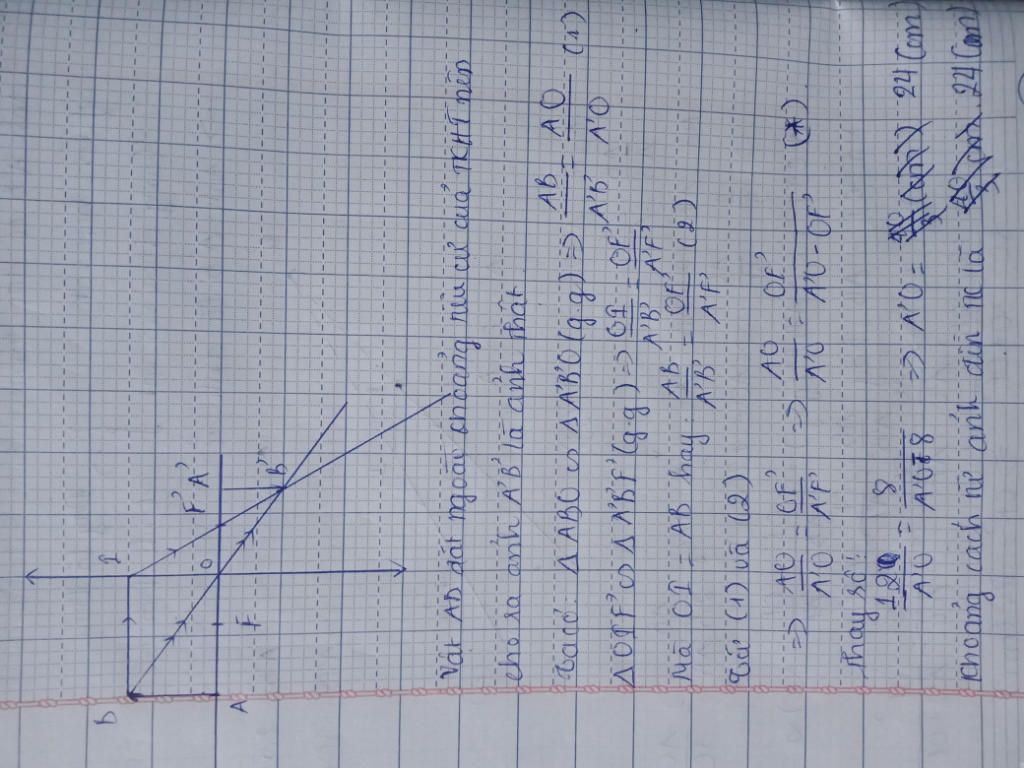 B I
F' A'
O
A F B'
Vật AB đặt ngoài khoảng tiêu cự của TKHT nên
cho ra ảnh A'B' là ảnh thật
Ta có: Δ ABO ∽ Δ A'B'O (g.g) => AB/A'B' = AO/A'O (1)
Δ OIF' ∽ Δ A'B'F' (g.g) => OI/A'B' = OF'/A'F'
Mà OI = AB hay AB/A'B' = OF'/A'F' (2)
Từ (1) và (2)
=> AO/A'O = OF'/A'F' => AO/A'O = OF'/A'O - OF' (*)
Thay số:
12/A'O = 8/A'O-8 => A'O = 24 (cm)
Khoảng cách từ ảnh đến TK là 24 (cm)